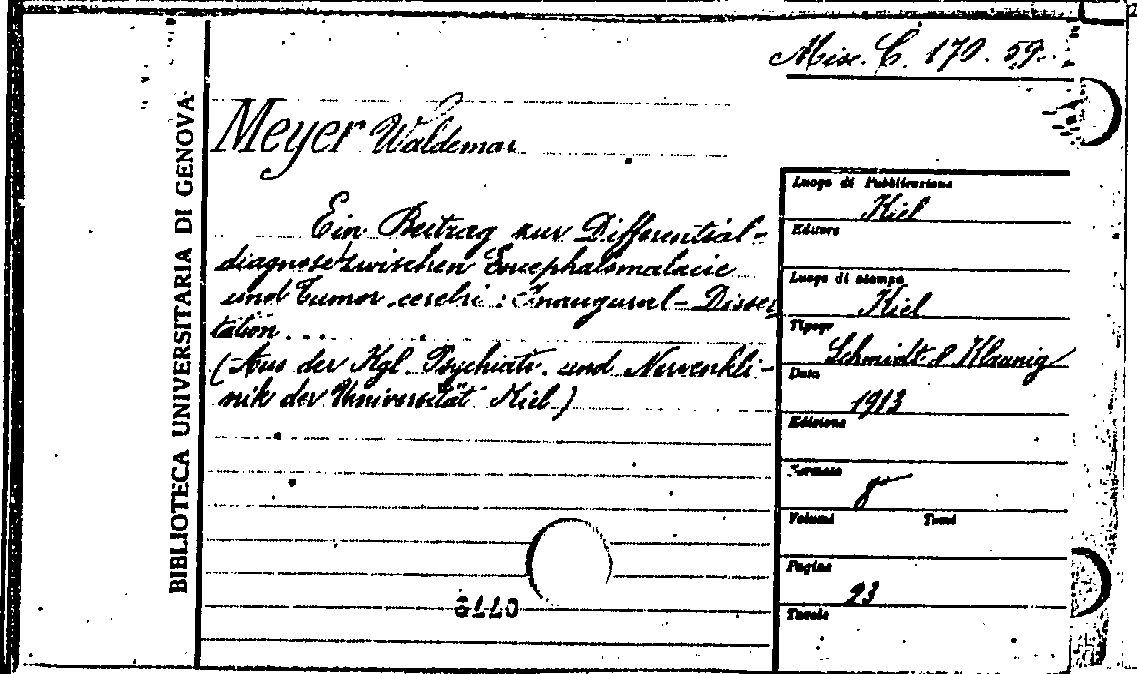 Misc. C. 170. 59.
BIBLIOTECA UNIVERSITARIA DI GENOVA
Meyer Waldemar
Ein Beitrag zur Differential-
diagnose zwischen Encephalomalacie
und Tumor cerebri: Inaugural-Disser
tation...
(Aus der Kgl. Psychiatr. und Nervenkli-
nik der Universität Kiel)
Luogo di Pubblicazione
Kiel
Editore
Luogo di stampa
Kiel
Tipogr
Schmidt & Klaunig
Data
1913
Edizione
Formato
8°
Volumi Tomi
Pagine
23
Tavole